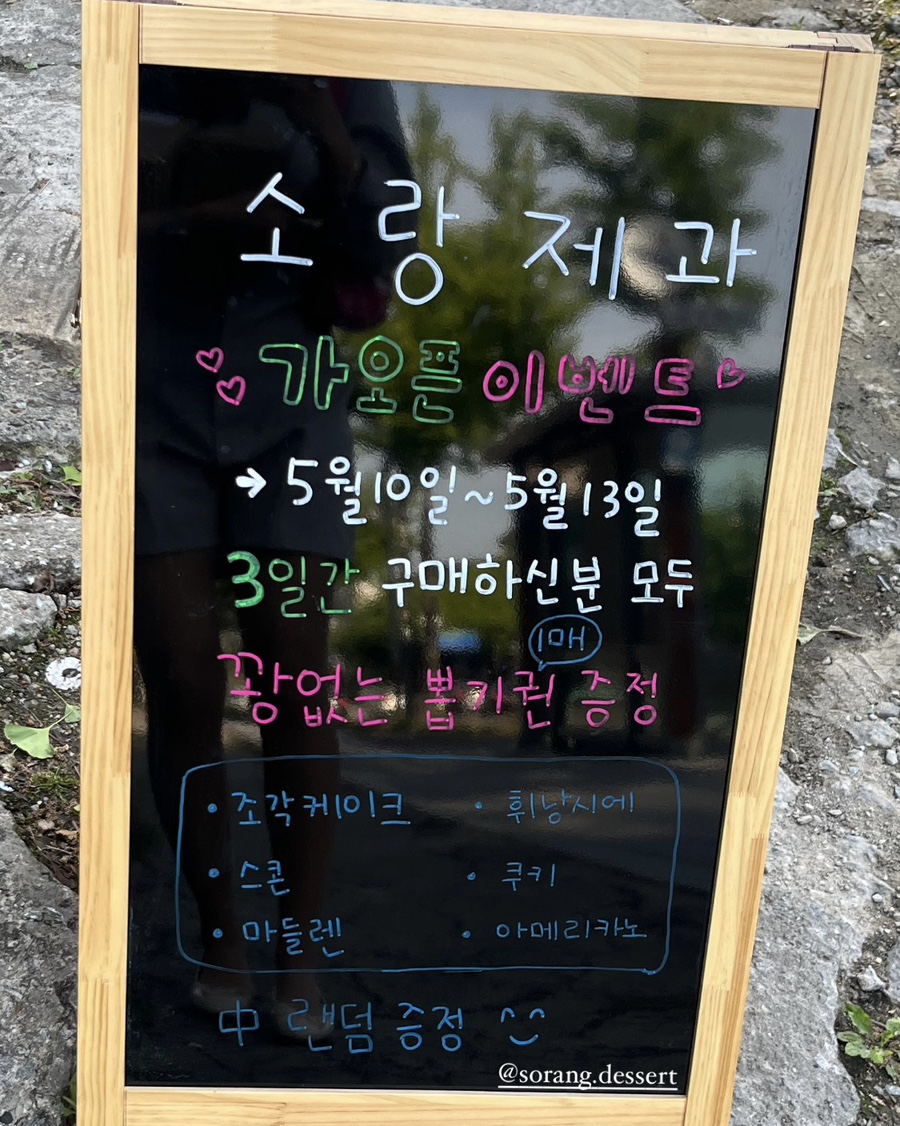 소랑제과
가오픈 이벤트
→ 5월10일~5월13일
3일간 구매하신분 모두
1매
꽝없는 뽑기권 증정
• 조각케이크 • 휘낭시에
• 스콘 • 쿠키
• 마들렌 • 아메리카노
中 랜덤 증정 ^^
@sorang.dessert